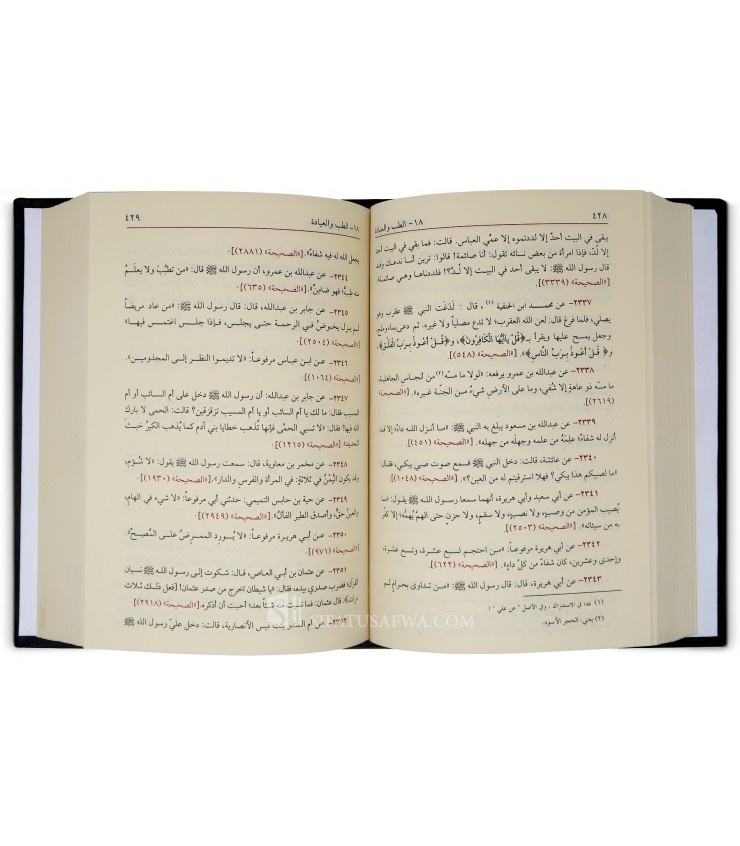 ٤٢٨
١٨- الطب والعيادة
يبقى في البيت أحدٌ إلا لددتموه إلا عمِّي العباس. قالت: فما بقي في البيت أحد
إلا لُدّ، فإذا امرأة من بعض نسائه تقول: أنا صائمة! قالوا: ترين أنا ندعك وقد
قال رسول الله ﷺ: لا يبقى أحد في البيت إلا لُدَّ؟! فلددناها وهي صائمة.
[«الصحيحة» (٣٣٣٩)].
٢٣٣٧- عن محمد ابن الحنفية (١)، قال: لَدَغَت النبي ﷺ عقرب وهو
يصلي، فلما فرغ قال: لعن الله العقرب؛ لا تدع مصلياً ولا غيره. ثم دعى بماء وملح
وجعل يمسح عليها ويقرأ بـ﴿قُلْ يَا أَيُّهَا الْكَافِرُونَ﴾، و﴿قُلْ أَعُوذُ بِرَبِّ الْفَلَقِ﴾
و﴿قُلْ أَعُوذُ بِرَبِّ النَّاسِ﴾. [«الصحيحة» (٥٤٨)].
٢٣٣٨- عن عبدالله بن عمرو يرفعه: «لولا ما مسّه(٢) من أنجاس الجاهلية
ما مسّه ذو عاهةٍ إلا شُفي، وما على الأرضِ شيءٌ من الجنّة غيره». [«الصحيحة»
(٢٦١٩)].
٢٣٣٩- عن عبدالله بن مسعود يبلغ به النبي ﷺ: «ما أنزل اللـه داءً إلا قد
أنزل له شفاءً؛ علِمَهُ من علمه وجهلَه من جهله». [«الصحيحة» (٤٥١)].
٢٣٤٠- عن عائشة، قالت: دخل النبي ﷺ فسمع صوت صبي يبكي، فقال:
«ما لصبيكم هذا يبكي؟ فهلا استرقيتم له من العين؟». [«الصحيحة» (١٠٤٨)].
٢٣٤١- عن أبي سعيد وأبي هريرة، أنهما سمعا رسول اللـه ﷺ يقول: «ما
يُصيب المؤمن من وصبٍ، ولا نصبٍ، ولا سقمٍ، ولا حزنٍ حتى الهمّ يُهمُّه؛ إلا كفّر
به من سيئاته». [«الصحيحة» (٢٥٠٣)].
٢٣٤٢- عن أبي هريرة مرفوعـاً: «من احتجم لسبـع عشـرة، وتسـع عشرة،
وإحدى وعشرين، كان شفاءً من كلّ داءٍ». [«الصحيحة» (٦٢٢)].
٢٣٤٣- عن أبي هريرة، قال: قال رسول اللـه ﷺ: «من تداوى بحرامٍ لم
(١) كذا في الاستدراك، وفي الأصل "عن علي"!
(٢) يعني: الحجر الأسود.
١٨- الطب والعيادة
٤٢٩
يجعل الله له فيه شفاءً». [«الصحيحة» (٢٨٨١)].
٢٣٤٤- عن عبدالله بن عمرو، أن رسول الله ﷺ قال: «من تطبَّبَ ولا يعلَمُ
منه طِبٌّ؛ فهو ضامنٌ». [«الصحيحة» (٦٣٥)].
٢٣٤٥- عن جابر بن عبدالله، قال: قال رسول الله ﷺ: «من عاد مريضاً
لم يزل يخوضُ في الرحمة حتى يجلس، فإذا جلس اغتمس فيها».
[«الصحيحة» (٢٥٠٤)].
٢٣٤٦- عن ابن عباس مرفوعاً: «لا تديموا النظر إلى المجذومين».
[«الصحيحة» (١٠٦٤)].
٢٣٤٧- عن جابر بن عبدالله: أن رسول الله ﷺ دخل على أم السائب أو أم
المسيب فقال: ما لك يا أم السائب أو يا أم المسيب تزفزفين؟ قالت: الحمى لا بارك
الله فيها! فقال: «لا تسبي الحمّى فإنها تُذهب خطايا بني آدم كما يُذهب الكيرُ خبثَ
الحديد». [«الصحيحة» (١٢١٥)].
٢٣٤٨- عن مخمر بن معاوية، قال: سمعت رسول الله ﷺ يقول: «لا شُؤم،
وقد يكون اليُمْنُ في ثلاثةٍ: في المرأة والفرس والدار». [«الصحيحة» (١٩٣٠)].
٢٣٤٩- عن حية بن حابس التميمي: حدثني أبي مرفوعاً: «لا شيء في الهام،
والعينُ حقٌّ، وأصدق الطير الفألُ». [«الصحيحة» (٢٩٤٩)].
٢٣٥٠- عن أبي هريرة مرفوعـاً: «لا يُـورد الممـرضُ علـى المُصِـحّ».
[«الصحيحة» (٩٧١)].
٢٣٥١- عن عثمان بن أبي العاص، قال: شكوت إلى رسول الله ﷺ نسيان
القرآن؛ فضرب صدري بيده، فقال: «يا شيطان اخرج من صدر عثمان! [فعل ذلـك ثلاث
مرات]». قال عثمان: فما نسيت منه شيئاً بعد؛ أحببت أن أذكره. [«الصحيحة» (٢٩١٨)].
٢٣٥٢- عن أم المنذر بنت قيس الأنصارية، قالت: دخل عليّ رسول الله ﷺ
SIFATUSAFWA.COM